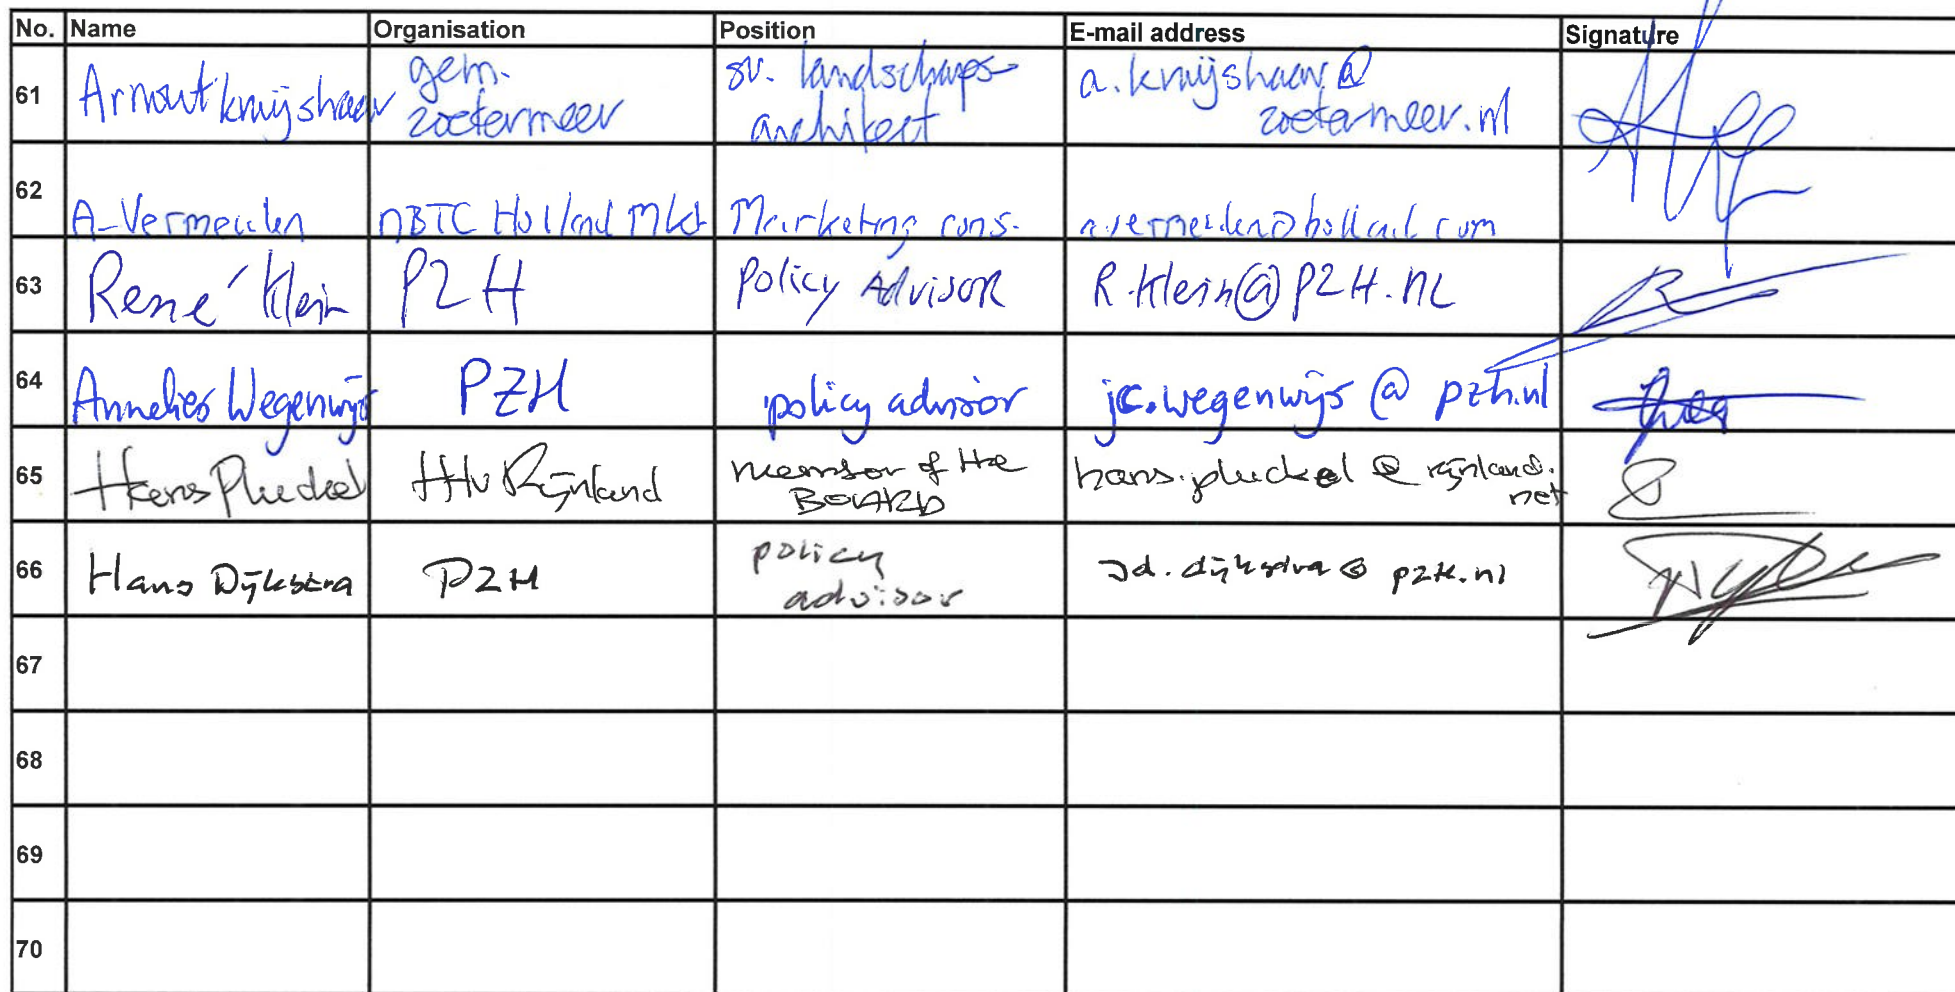 No. Name Organisation Position E-mail address Signature
61 Arnout Knuijshaar gem. zoetermeer sr. landschaps- architect a.knuijshaar@ zoetermeer.nl
62 A-Vermeulen NBTC Holland Mkt Marketing cons. avermeulen@holland.com
63 René Klein PZH Policy Advisor R.Klein@PZH.NL
64 Annelies Wegenwijs PZH policy advisor jc.wegenwijs @ pzh.nl
65 Hans Pluckel HHv Rijnland member of the BOARD hans.pluckel @ rijnland. net
66 Hans Dijkstra PZH policy advisor Jd.dijkstra@ pzh.nl
67
68
69
70